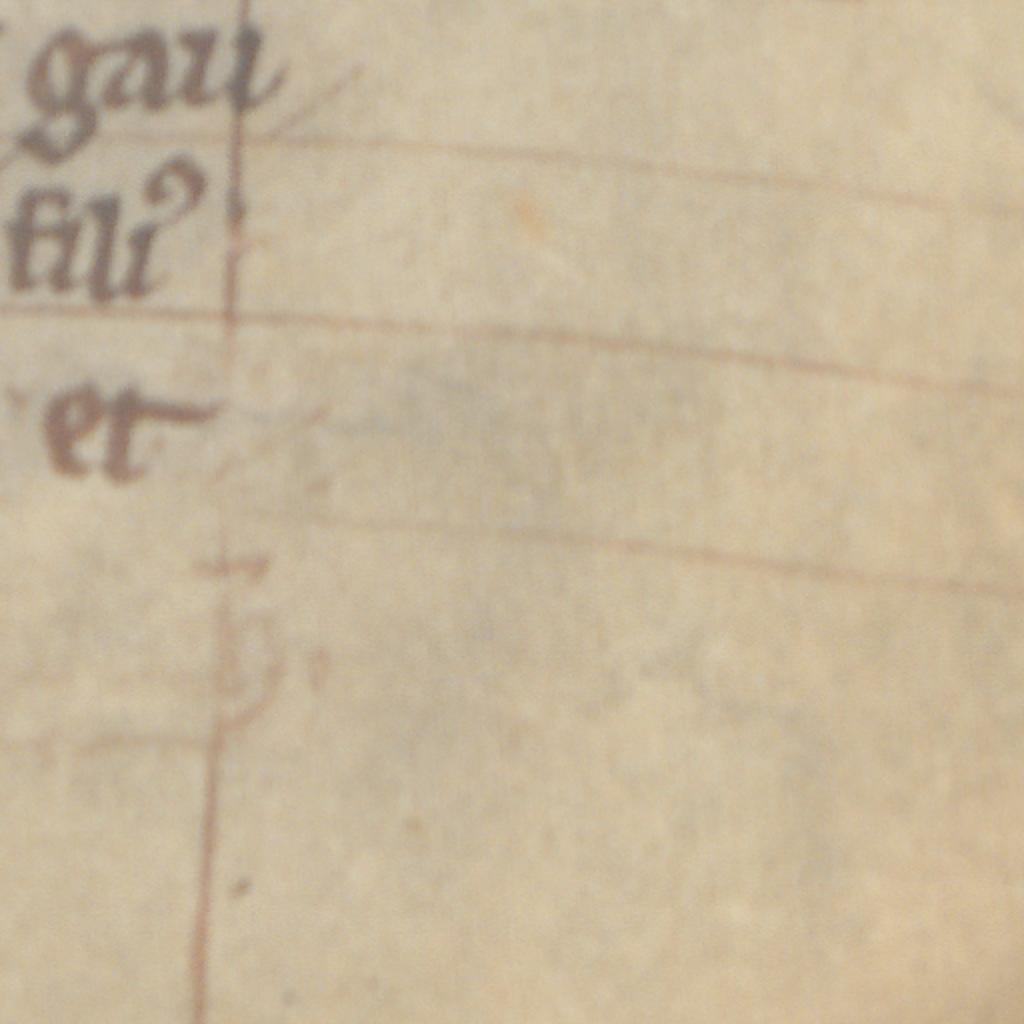 gau
fili⁹
et